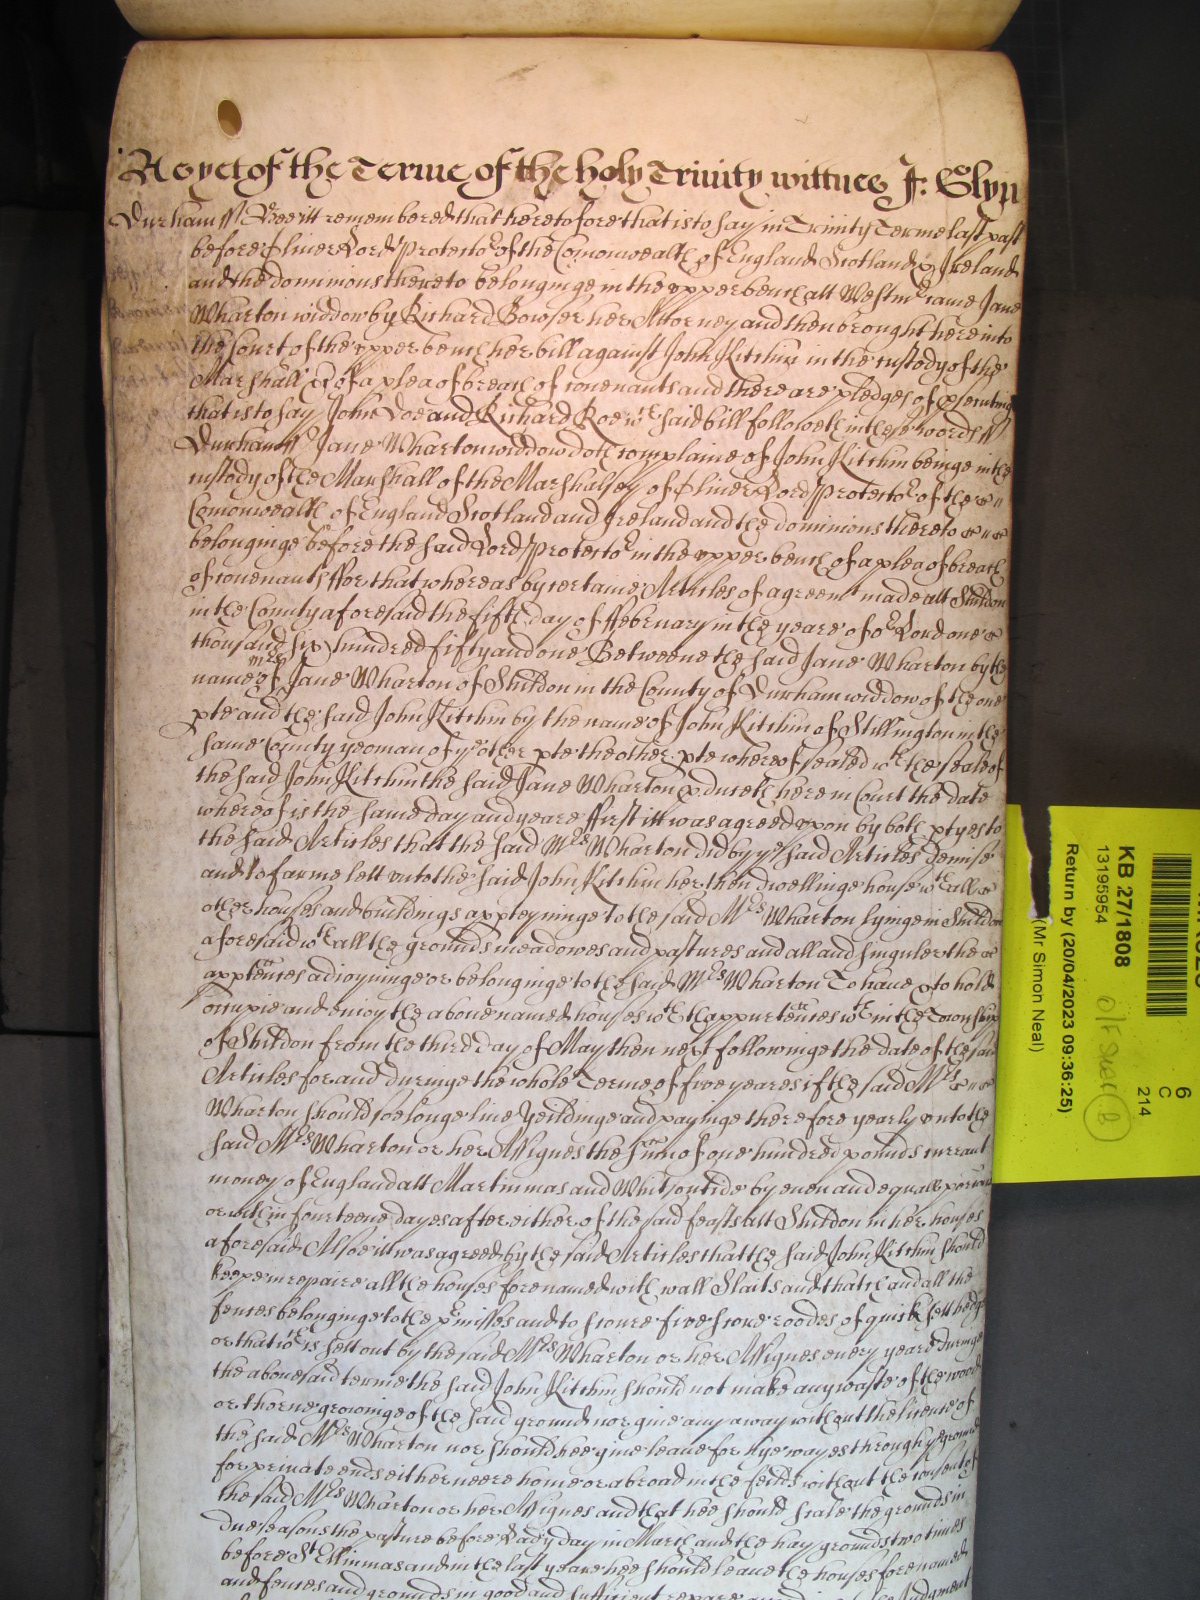 As yet of the Terme of the holy Trinity wittnes J: Glyn
Durham ss Bee itt remembered that heretofore that is to say in Trinity Terme last past
before Oliver Lord Protector of the Comonwealth of England Scotland & Ireland
and the dominions thereto belonginge in the upper bench att Westmr came Jane
Wharton widdow by Richard Bowser her Attorney and then brought here into
the Court of the upper bench her bill against John Kitchin in the custody of the
Marshall &c of a plea of breach of covenants and there are pledges of prosecuting
that is to say John Doe and Richard Roe wch said bill followeth in these words ss
Durham ss Jane Wharton widdow doth complaine of John Kitchin beinge in the
custody of the Marshall of the Marshalsey of Oliver Lord Protector of the
Comonwealth of England Scotland and Ireland and the dominions thereto
belonginge before the said Lord Protector in the upper bench of a plea of breach
of covenants ffor that whereas by certaine Articles of agreemt made att Shildon
in the County aforesaid the fifth day of ffebruary in the yeare of or Lord one
thousand six hundred fifty and one Betweene the said Jane Wharton by the
name of mrs Jane Wharton of Shildon in the County of Durham widdow of the one
pte and the said John Kitchin by the name of John Kitchin of Stillington in the
same County yeoman of ye other pte the other pte whereof sealed wth the seale of
the said John Kitchin the said Jane Wharton pduceth here in Court the date
whereof is the same day and yeare ffirst itt was agreed upon by both ptyes to
the said Articles that the said Mrs Wharton did by ye said Articles demise
and to farme lett unto the said John Kitchin her then dwellinge house wth all
other houses and buildings apperteyninge to the said Mrs Wharton lyinge in Shildon
aforesaid wth all the grounds meadowes and pastures and all and singuler the
apptences adioyninge or belonginge to the said Mrs Wharton To have & to hold
occupie and enioy the above named houses wth thappurtences wthin the Township
of Shildon from the third day of May then next followinge the date of the said
Articles for and duringe the whole Terme of five yeares if the said Mrs
Wharton should soe longe live Yeildinge and payinge therefore yearly unto the
said Mrs Wharton or her Assignes the sum of one hundred pounds currant
money of England att Martinmas and Whitsontide by even and equall porcons
or within fourteene dayes after either of the said feasts att Shildon in her houses
aforesaid Alsoe itt was agreed by the said Articles that the said John Kitchin should
keepe in repaire all the houses forenamed with wall Slaits and thatch and all the
fences belonginge to the pmisses and to scoure five score roodes of quick sett hedge
or that wch is sett out by the said Mrs Wharton or her Assignes every yeare duringe
the abovesaid terme the said John Kitchin should not make any waste of the wood
or thorne growinge of the said ground nor give any away without the licence of
the said Mrs Wharton nor should hee give leave for hye wayes through ye ground
for private ends either neere home or abroad in the feilds without the consent of
the said Mrs Wharton or her Assignes and that hee should scale the grounds in
due seasons the pasture before Lady day in March and the hay grounds two times
before St Ellinmas and in the last yeare hee should leave the houses forenamed
and fences and grounds in good and sufficient repare Judgment
6
C
214
KB 27/1808
13195954
Return by (20/04/2023 09:36:25)
(Mr Simon Neal)